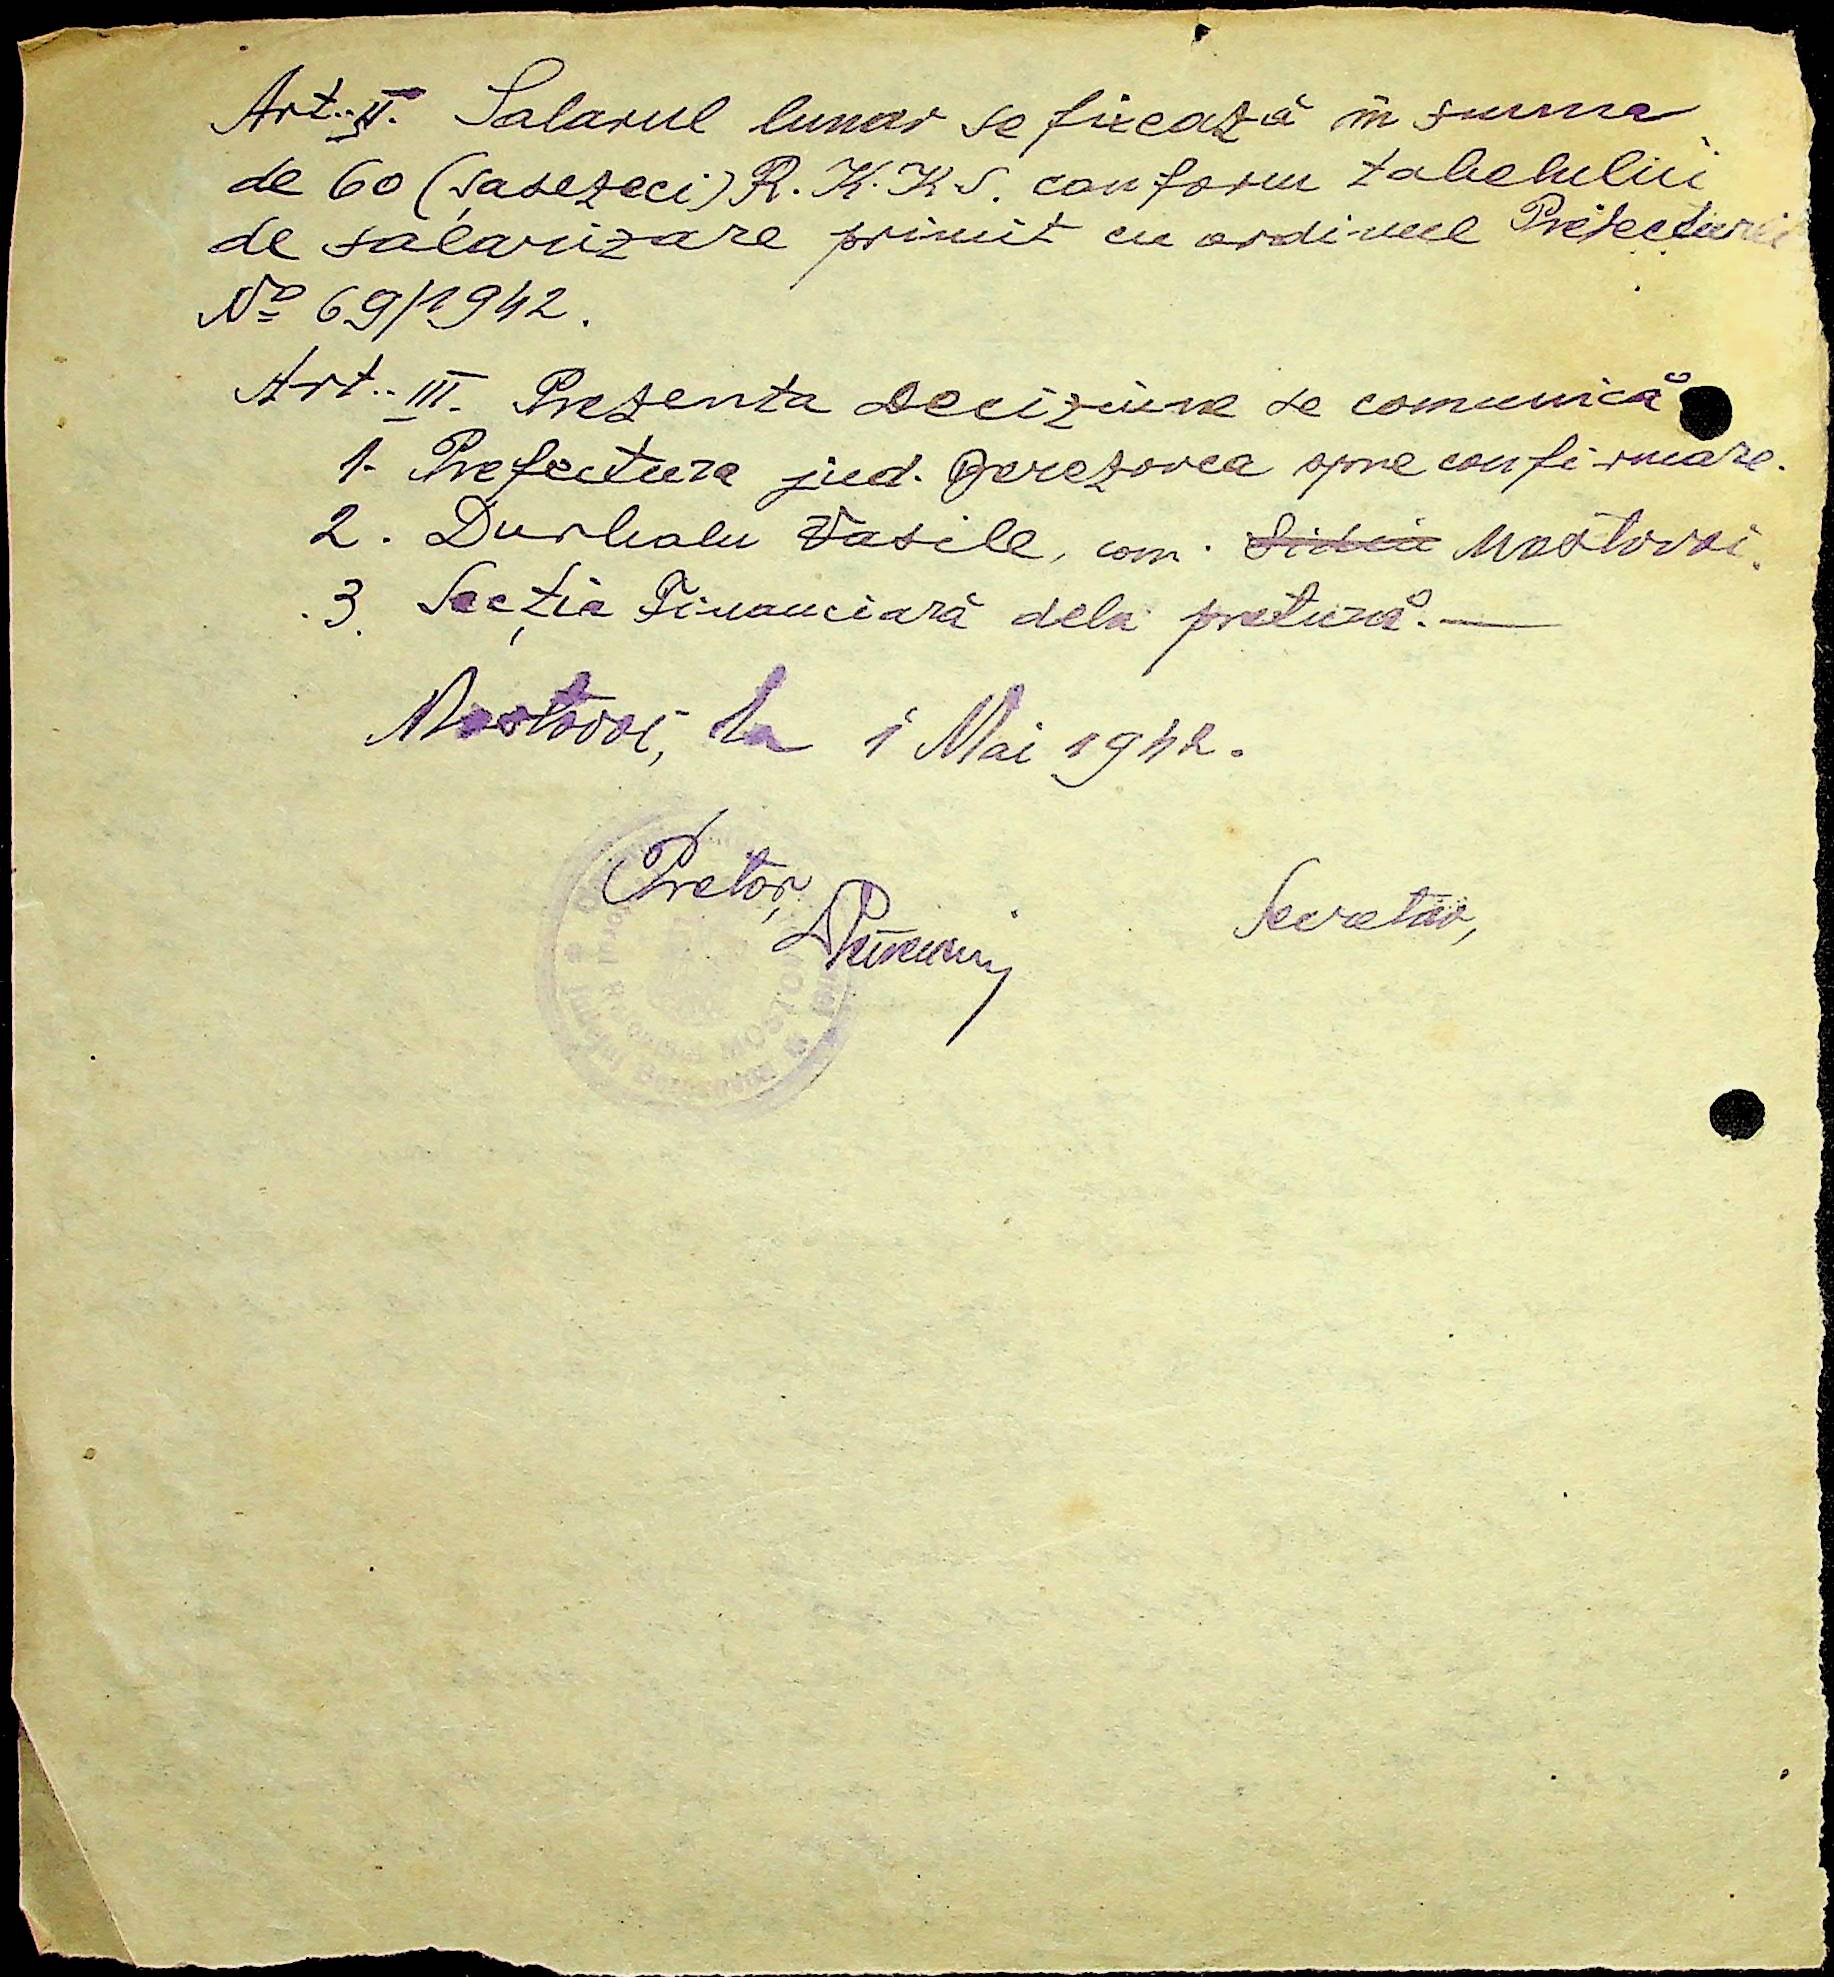 Art. II. Salarul lunar se fixează în suma
de 60 (șasezeci) R.K.K.S. conform tabelului
de salarizare primit cu ordinul Prefecturii
No 69/1942.
Art. III. Prezenta deciziune se comunică
1. Prefectura jud. Berezovca spre confirmare.
2. Durbalu Vasile, com. Mostovoi.
3. Secția Financiară dela pretură.—
Mostovoi, la 1 Mai 1942.
Pretor,
Secretar,
Județul Berezovca
MOSTOVOI